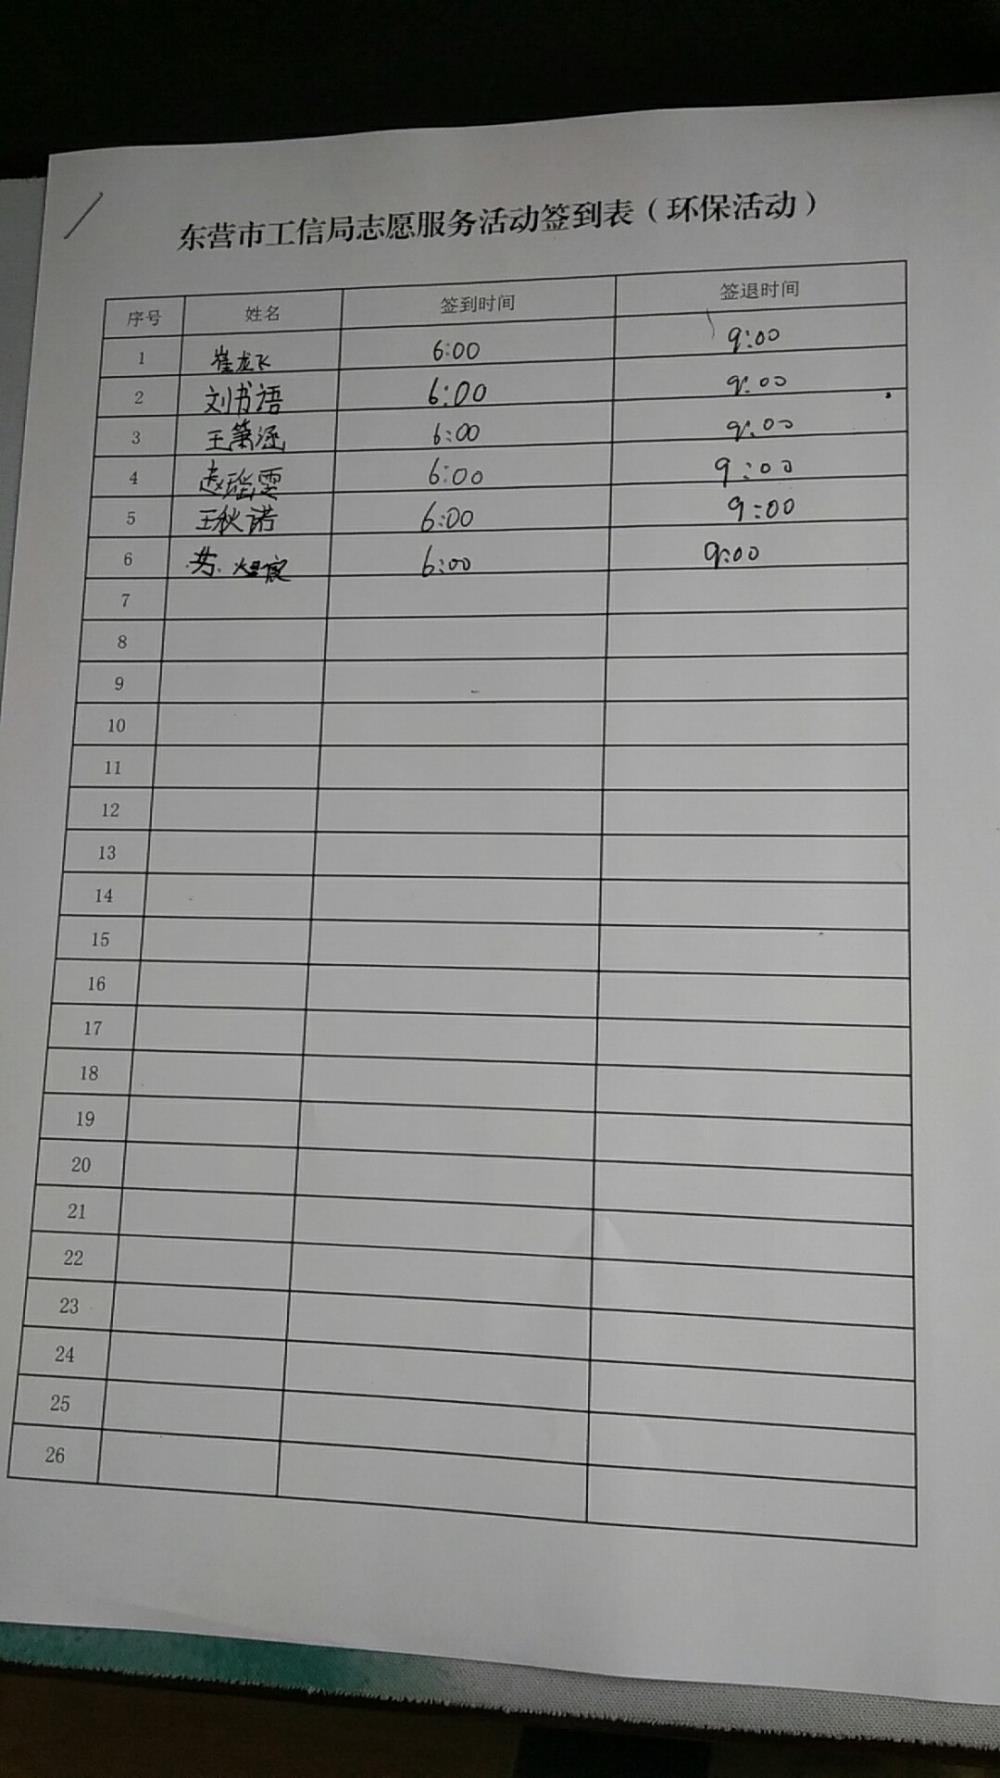 东营市工信局志愿服务活动签到表（环保活动）
序号 姓名 签到时间 签退时间
1 崔龙飞 6:00 9:00
2 刘书语 6:00 9:00
3 王箫涵 6:00 9:00
4 赵瑶雯 6:00 9:00
5 王秋诺 6:00 9:00
6 6:00 9:00
7
8
9
10
11
12
13
14
15
16
17
18
19
20
21
22
23
24
25
26